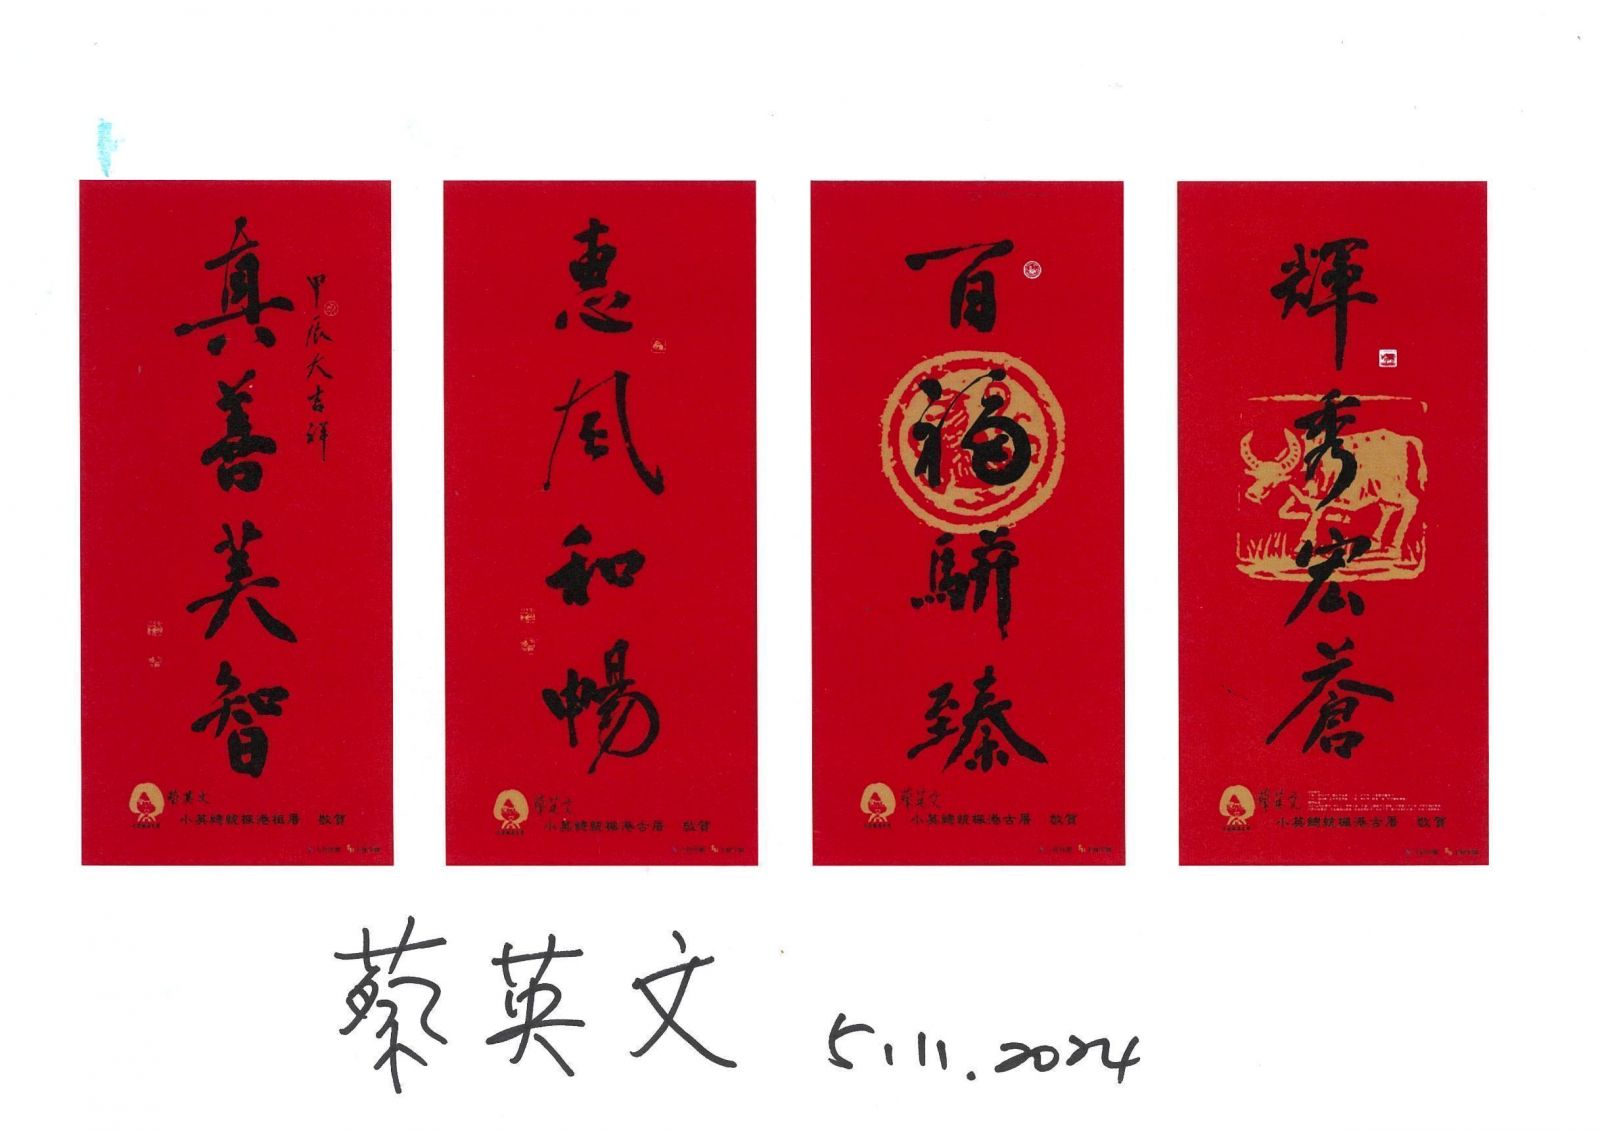 真善美智
甲辰大吉祥
蔡英文
小英總統楓港祖厝 敬賀
惠風和暢
蔡英文
小英總統楓港古厝 敬賀
百福駢臻
蔡英文
小英總統楓港古厝 敬賀
輝秀宏蒼
蔡英文
小英總統楓港古厝 敬賀
蔡英文 5.11.2024